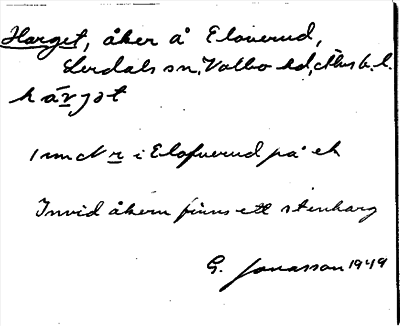 Harget, åker å Eloverud,
Lerdals sn, Valbo hd, Älvsb. l.
hárjat
1 mm N r i Elofverud på ek
Invid åkern finns ett stenharg
G. Jonasson 1949